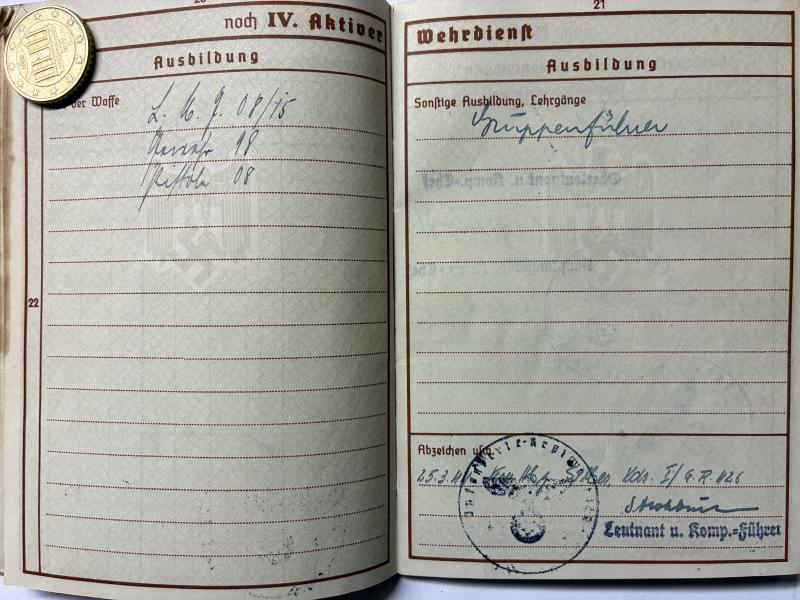 noch IV. Aktiver
Ausbildung
der Waffe
L. M. G. 08/15
98
Pistole 08
22
21
Wehrdienst
Ausbildung
Sonstige Ausbildung, Lehrgänge
Gruppenführer
Abzeichen usw.
25.3. I/ G.R. 426
Leutnant u. Komp.-Führer